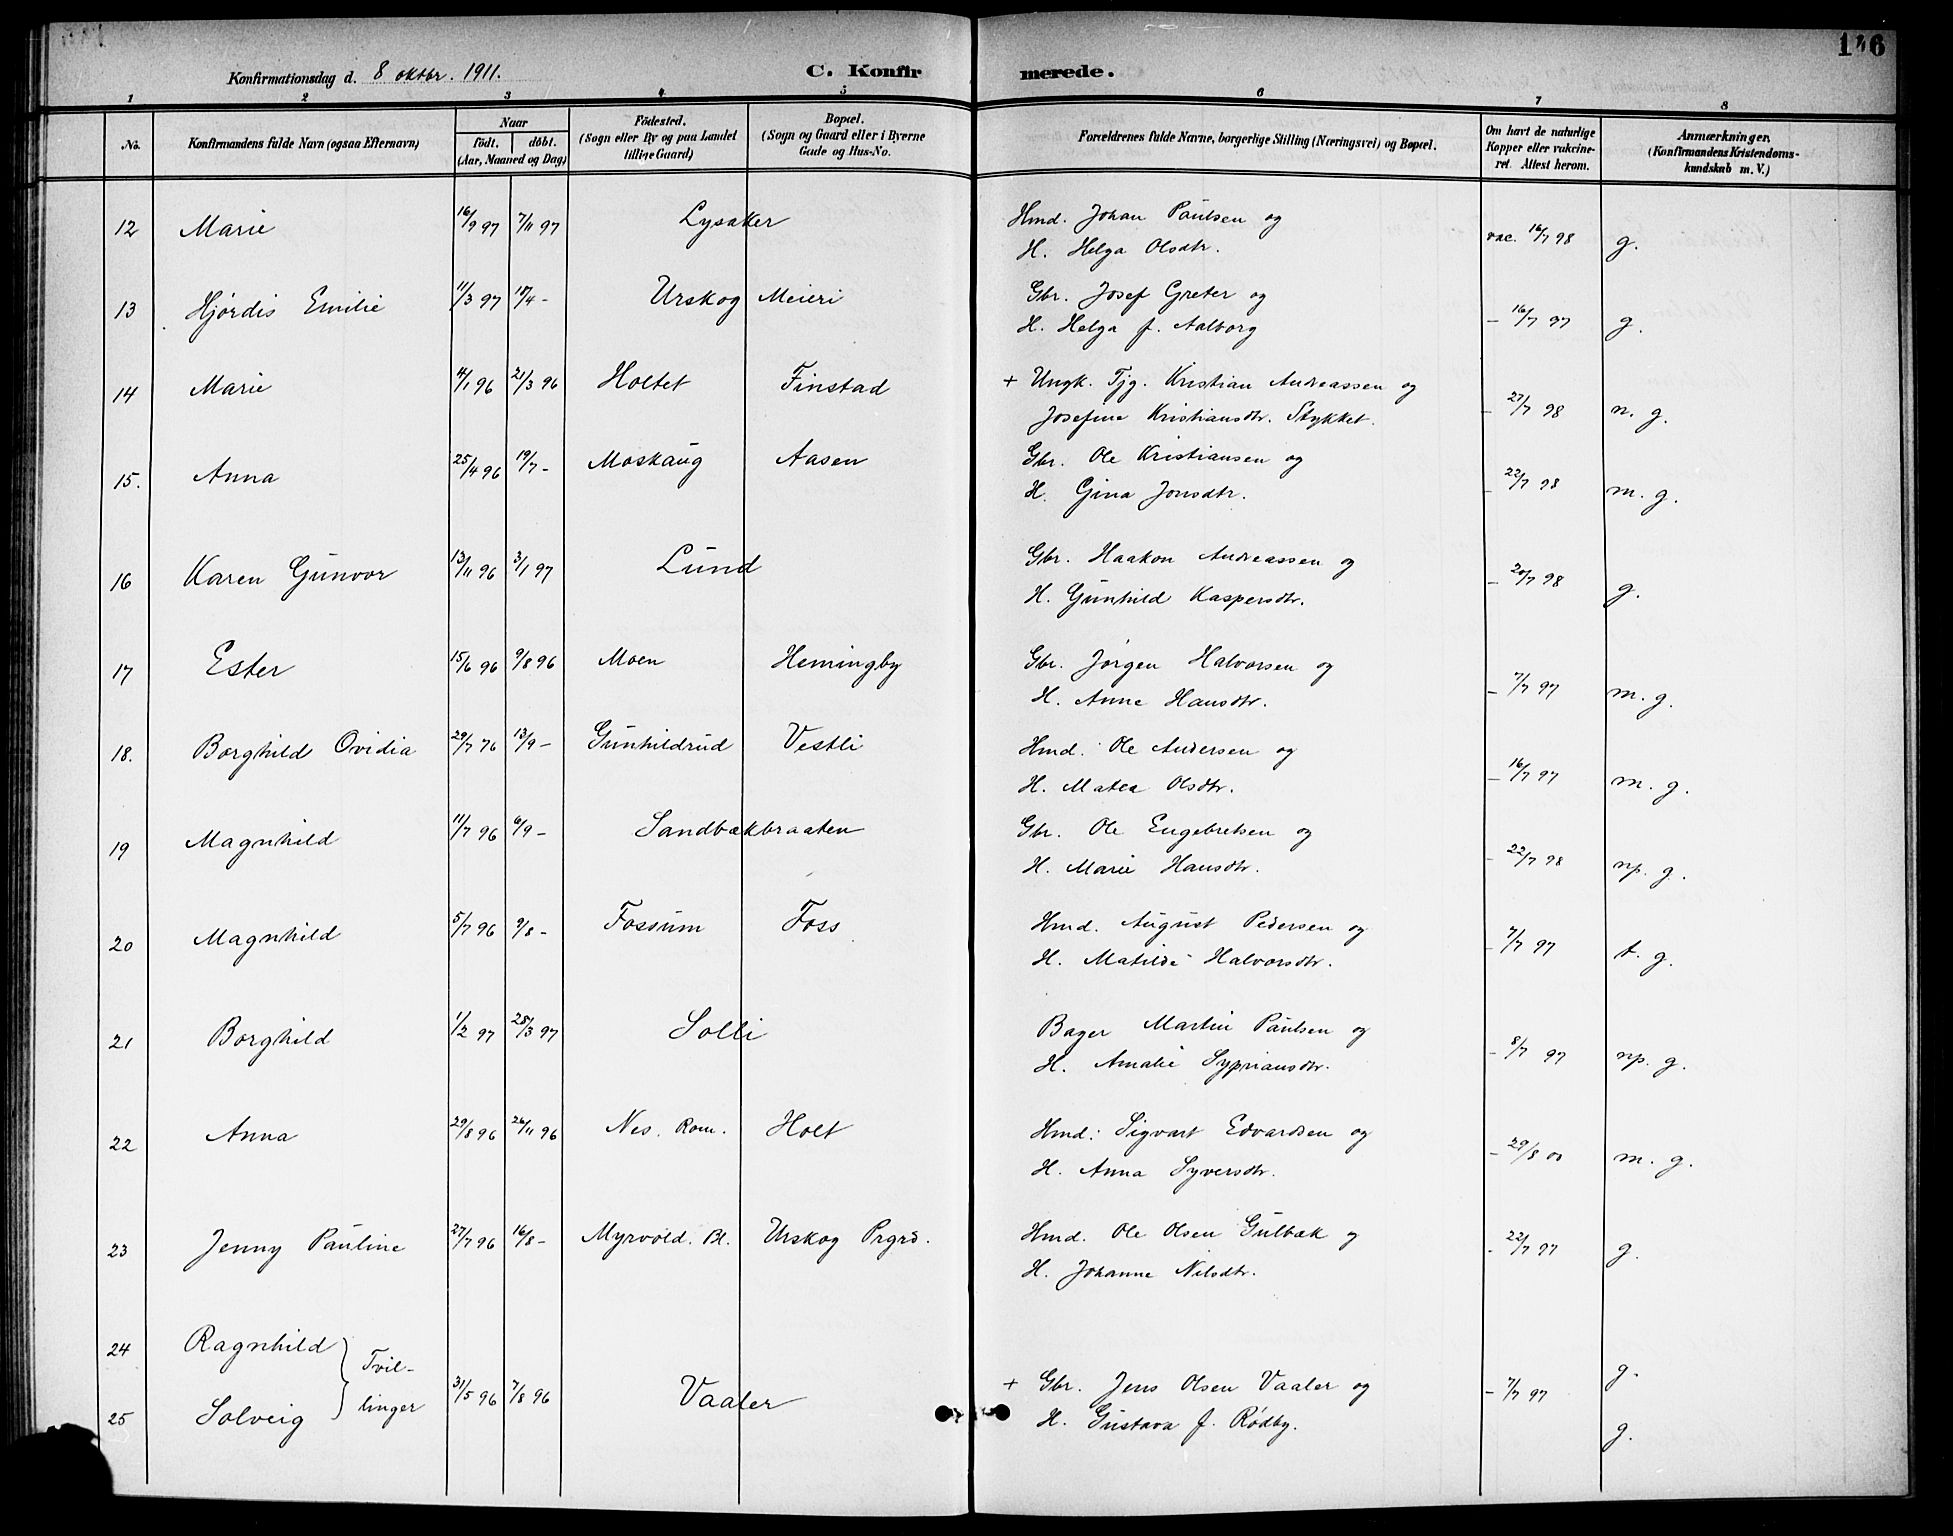 Konfirmationsdag d. 8 oktbr. 1911.
C. Konfirmerede.
1 2 3 4 5 6 7 8
No.
Konfirmandens fulde Navn (ogsaa Efternavn)
Naar
födt. döbt.
(Aar, Maaned og Dag)
Födested.
(Sogn eller By og paa Landet
tillige Gaard)
Bopæl.
(Sogn og Gaard eller i Byerne
Gade og Hus-No.
Forældrenes fulde Navne, borgerlige Stilling (Næringsvei) og Bopæl.
Om havt de naturlige
Kopper eller vakcine-
ret. Attest herom.
Anmærkninger,
(Konfirmandens Kristendoms-
kundskab m. V.)
12 Marie 16/9 97 7/11 97 Lysaker Hmd. Johan Paulsen og
H. Helga Olsdtr. vac. 16/7 98 g.
13 Hjørdis Emilie 11/3 97 18/4 - Urskog Meieri Gbr. Josef Greter og
H. Helga f. Aalborg - 16/7 97 g.
14 Marie 4/1 96 21/3 96 Holtet Finstad + Ungk. Tjg. Kristian Andreassen og
Josefine Kristiansdtr. Stykket. - 27/7 98 n. g.
15. Anna 25/4 96 19/7 - Moskaug Aasen Gbr. Ole Kristiansen og
H. Gina Jonsdtr. - 22/7 98 m. g.
16 Karen Gunvor 13/11 96 3/1 97 Lund Gbr. Haakon Andreassen og
H. Gunhild Kaspersdtr. - 20/7 98 g.
17 Ester 15/6 96 9/8 96 Moen Hemingby Gbr. Jørgen Halvorsen og
H. Anne Hansdtr. - 7/7 97 m. g.
18. Borghild Ovidia 29/7 76 13/9 - Gunhildrud Vestli Hmd. Ole Andersen og
H. Matea Olsdtr. - 16/7 97 m. g.
19 Magnhild 11/7 96 6/9 - Sandbækbraaten Gbr. Ole Engebretsen og
H. Marie Hansdtr. - 22/7 98 np. g.
20 Magnhild 5/7 96 9/8 - Fossum Foss Hmd. August Pedersen og
H. Matilde Halvorsdtr. - 7/7 97 t. g.
21 Borghild 1/2 97 28/3 97 Solli Bager Martin Paulsen og
H. Amalie Sypriansdtr. - 8/7 97 np. g.
22 Anna 29/8 96 26/11 96 Nes. Rom. Holt Hmd. Sigvart Edvardsen og
H. Anna Syversdtr. - 29/8 00 m. g.
23 Jenny Pauline 27/7 96 16/8 - Myrvold. Bl. Urskog Prgrd. Hmd. Ole Olsen Gulbæk og
H. Johanne Nilsdtr. - 22/7 97 g.
24 Ragnhild } Tvil- g.
31/5 96 7/8 96 Vaaler + Gbr. Jens Olsen Vaaler og - 7/7 97
25 Solveig } linger H. Gustava f. Rødby. g.